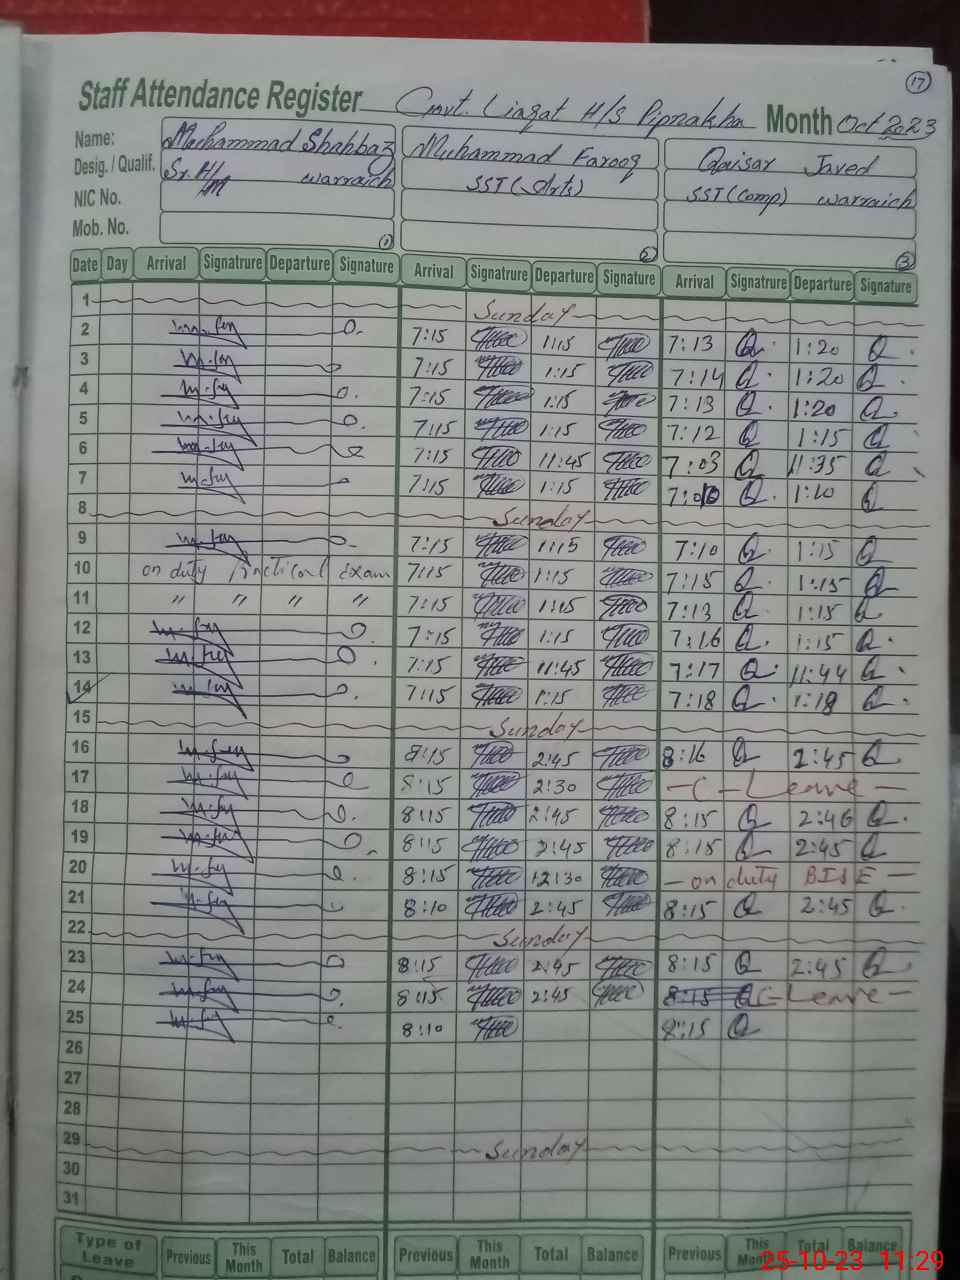 17
Staff Attendance Register Govt. Liaqat H/S Pipnakha Month Oct 2023
Name: Muhammad Shahbaz Muhammad Farooq Qaisar Javed
Desig. / Qualif. Sr. H/M warraich SST (Arts) SST (Comp) warraich
NIC No.
Mob. No.
1 2 3
Date Day Arrival Signatrure Departure Signature Arrival Signatrure Departure Signature Arrival Signatrure Departure Signature
1 Sunday
2 7:15 1:15 7:13 Q 1:20 Q
3 7:15 1:15 7:14 Q 1:20 Q
4 7:15 1:15 7:13 Q 1:20 Q
5 7:15 1:15 7:12 Q 1:15 Q
6 7:15 11:45 7:03 Q 11:35 Q
7 7:15 1:15 Q 1:10 Q
8 Sunday
9 7:15 1:15 7:10 Q 1:15 Q
10 on duty Practical Exam 7:15 1:15 7:15 Q 1:15 Q
11 " " " " 7:15 1:15 7:13 Q 1:15 Q
12 7:15 1:15 7:16 Q 1:15 Q
13 7:15 11:45 7:17 Q 11:44 Q
14 7:15 1:15 7:18 Q 1:18 Q
15 Sunday
16 8:15 2:45 8:16 Q 2:45 Q
17 8:15 2:30 - C - Leave -
18 8:15 2:45 8:15 Q 2:46 Q
19 8:15 2:45 8:15 Q 2:45 Q
20 8:15 12:30 - on duty BISE -
21 8:10 2:45 8:15 Q 2:45 Q
22 Sunday
23 8:15 2:45 8:15 Q 2:45 Q
24 8:15 2:45 8:15 Q C-Leave -
25 8:10 8:15 Q
26
27
28
29 Sunday
30
31
Type of Leave Previous This Month Total Balance Previous This Month Total Balance Previous This Month Total Balance
25-10-23 11:29